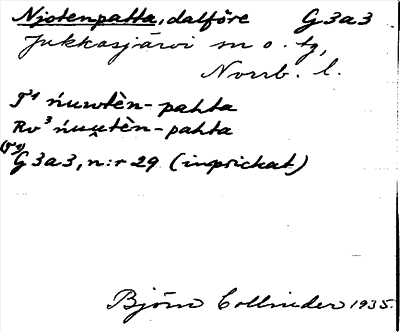 Njotenpatta, dalföre G3a3
Jukkasjärvi sn o. tg,
Norrb. l.
T⁴ ńuwtèn-pahta
Rv³ ńuu̯tèn-pahta
G3a3, n:r 29 (inprickat)
Björn Collinder 1935.